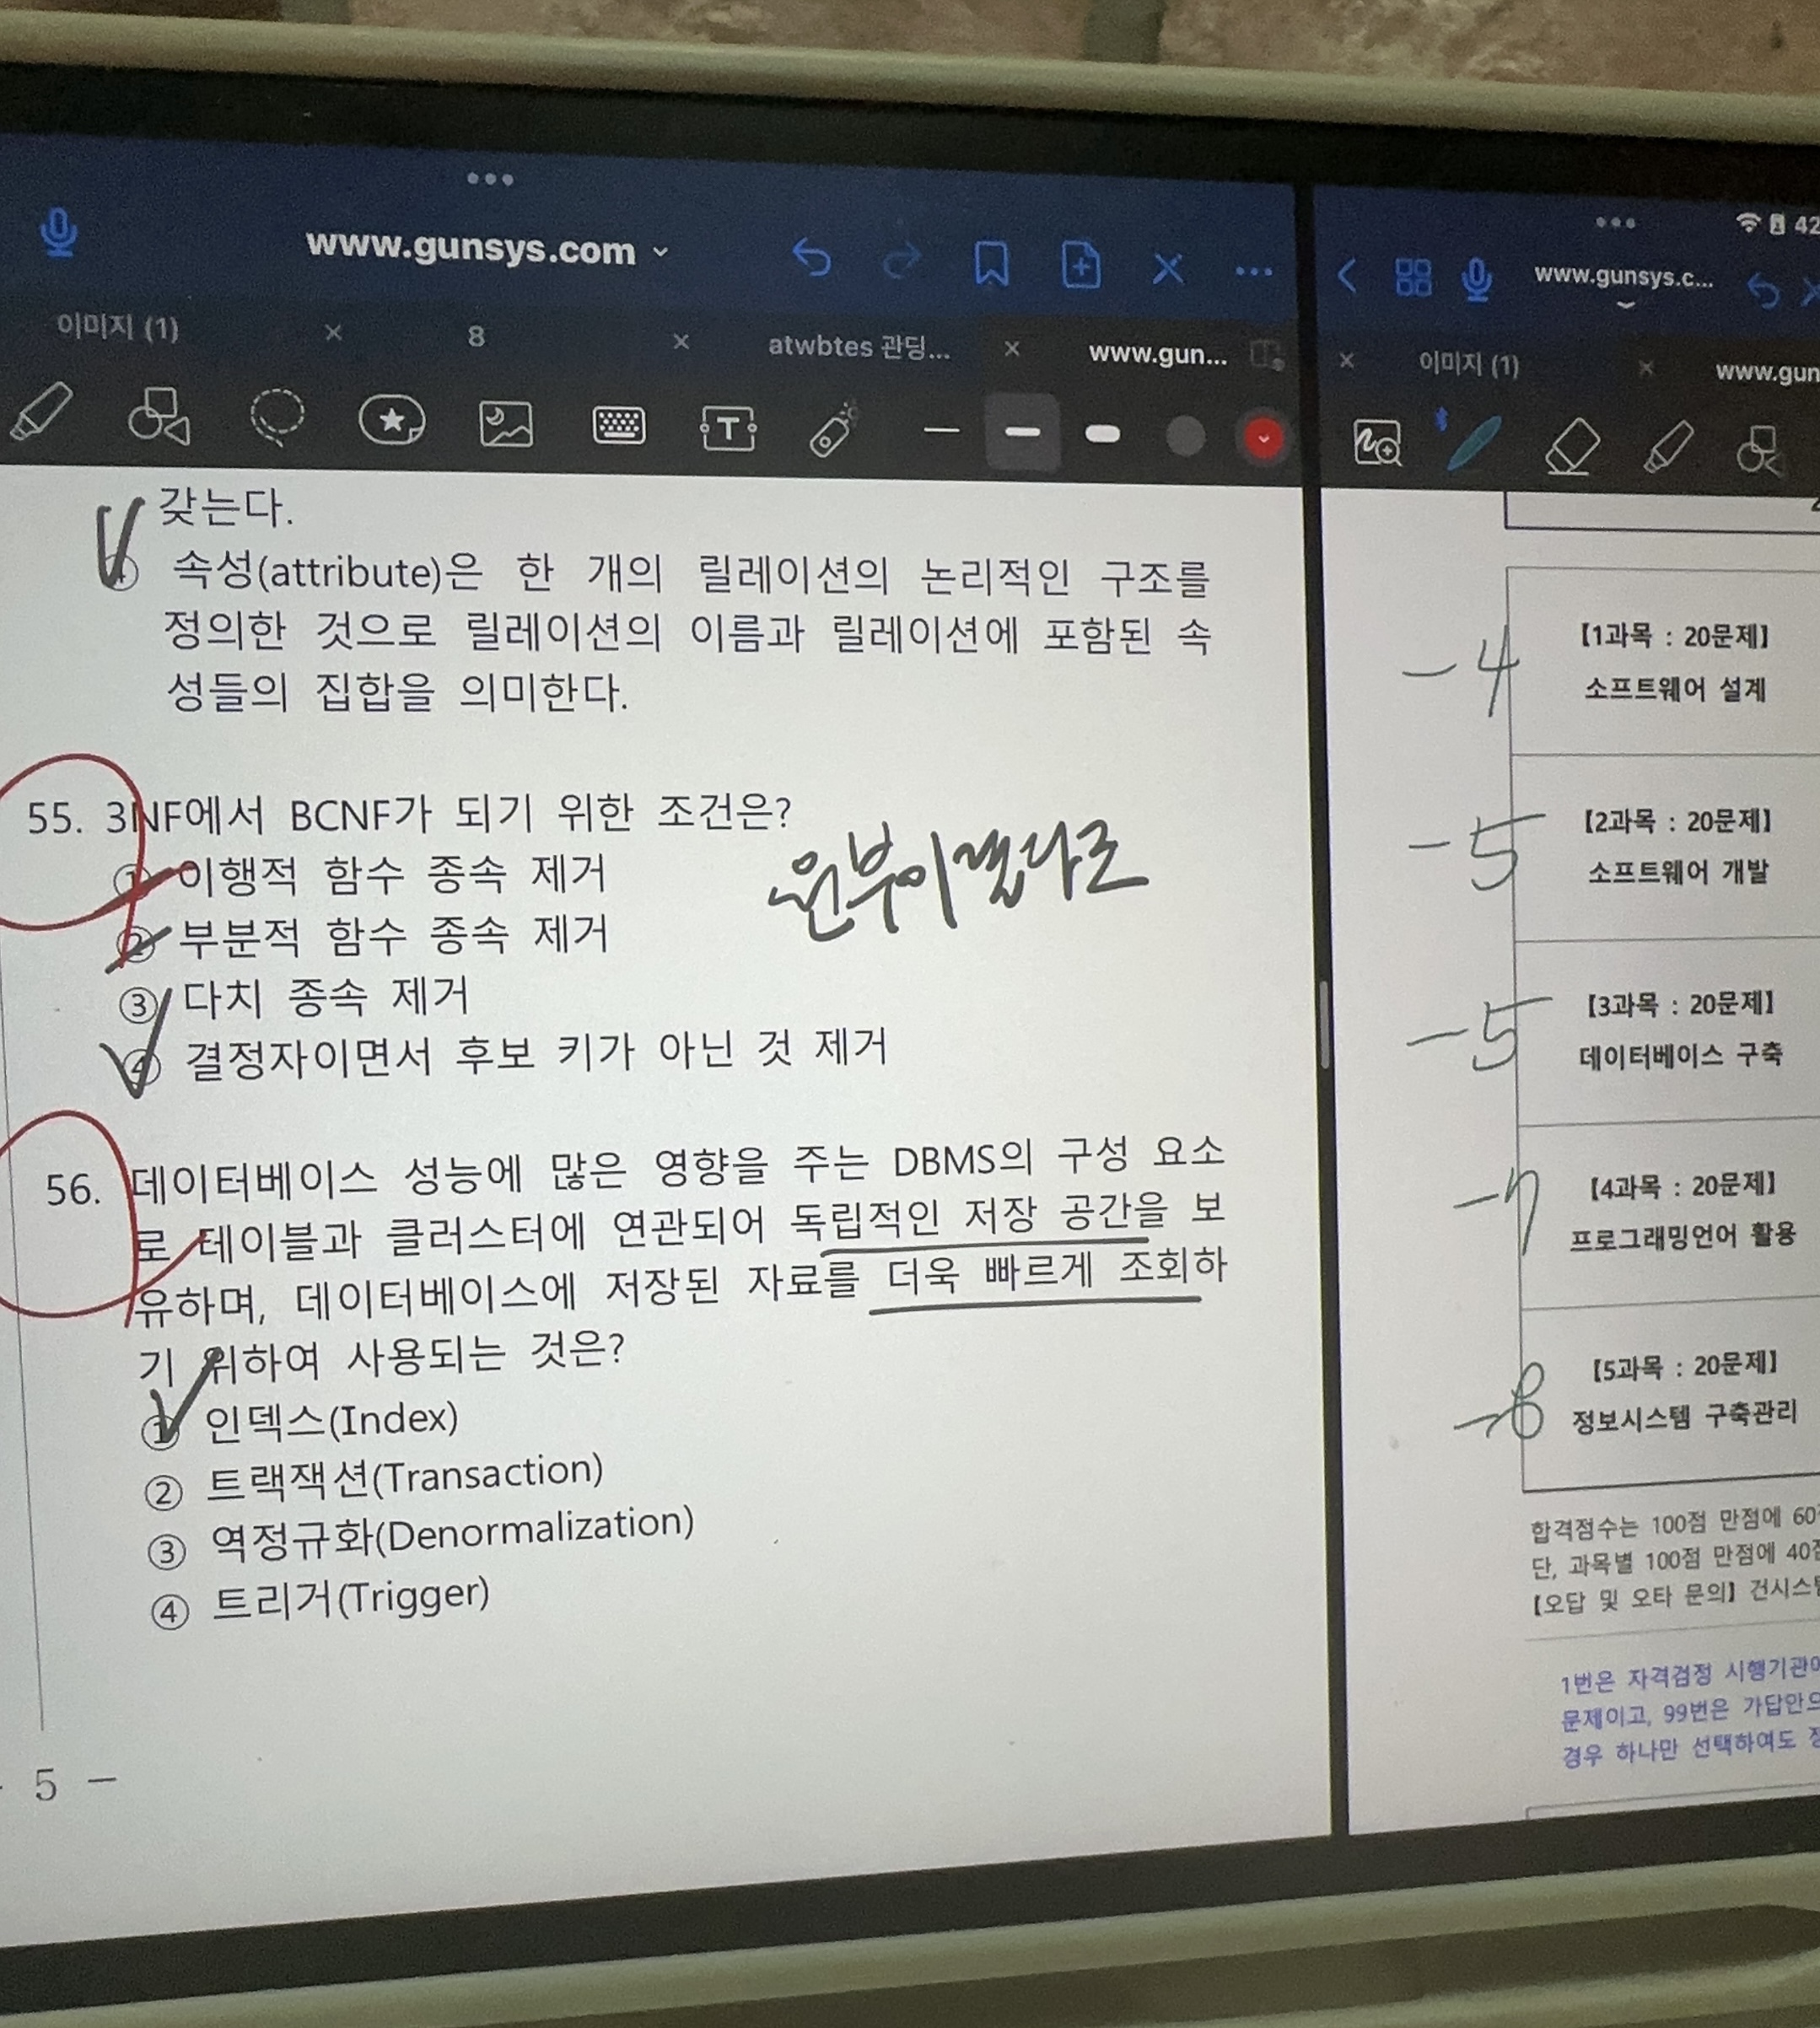 www.gunsys.com
이미지 (1)
8
atwbtes 관딩...
www.gun...
갖는다.
④ 속성(attribute)은 한 개의 릴레이션의 논리적인 구조를
정의한 것으로 릴레이션의 이름과 릴레이션에 포함된 속
성들의 집합을 의미한다.
55. 3NF에서 BCNF가 되기 위한 조건은?
① 이행적 함수 종속 제거
② 부분적 함수 종속 제거
③ 다치 종속 제거
④ 결정자이면서 후보 키가 아닌 것 제거
원부이결다조
56. 데이터베이스 성능에 많은 영향을 주는 DBMS의 구성 요소
로 테이블과 클러스터에 연관되어 독립적인 저장 공간을 보
유하며, 데이터베이스에 저장된 자료를 더욱 빠르게 조회하
기 위하여 사용되는 것은?
① 인덱스(Index)
② 트랙잭션(Transaction)
③ 역정규화(Denormalization)
④ 트리거(Trigger)
- 5 -
42
www.gunsys.c...
이미지 (1)
www.gun
-4
【1과목 : 20문제】
소프트웨어 설계
-5
【2과목 : 20문제】
소프트웨어 개발
-5
【3과목 : 20문제】
데이터베이스 구축
-7
【4과목 : 20문제】
프로그래밍언어 활용
-8
【5과목 : 20문제】
정보시스템 구축관리
합격점수는 100점 만점에 60
단, 과목별 100점 만점에 40점
【오답 및 오타 문의】 건시스템
1번은 자격검정 시행기관에
문제이고, 99번은 가답안으
경우 하나만 선택하여도 정